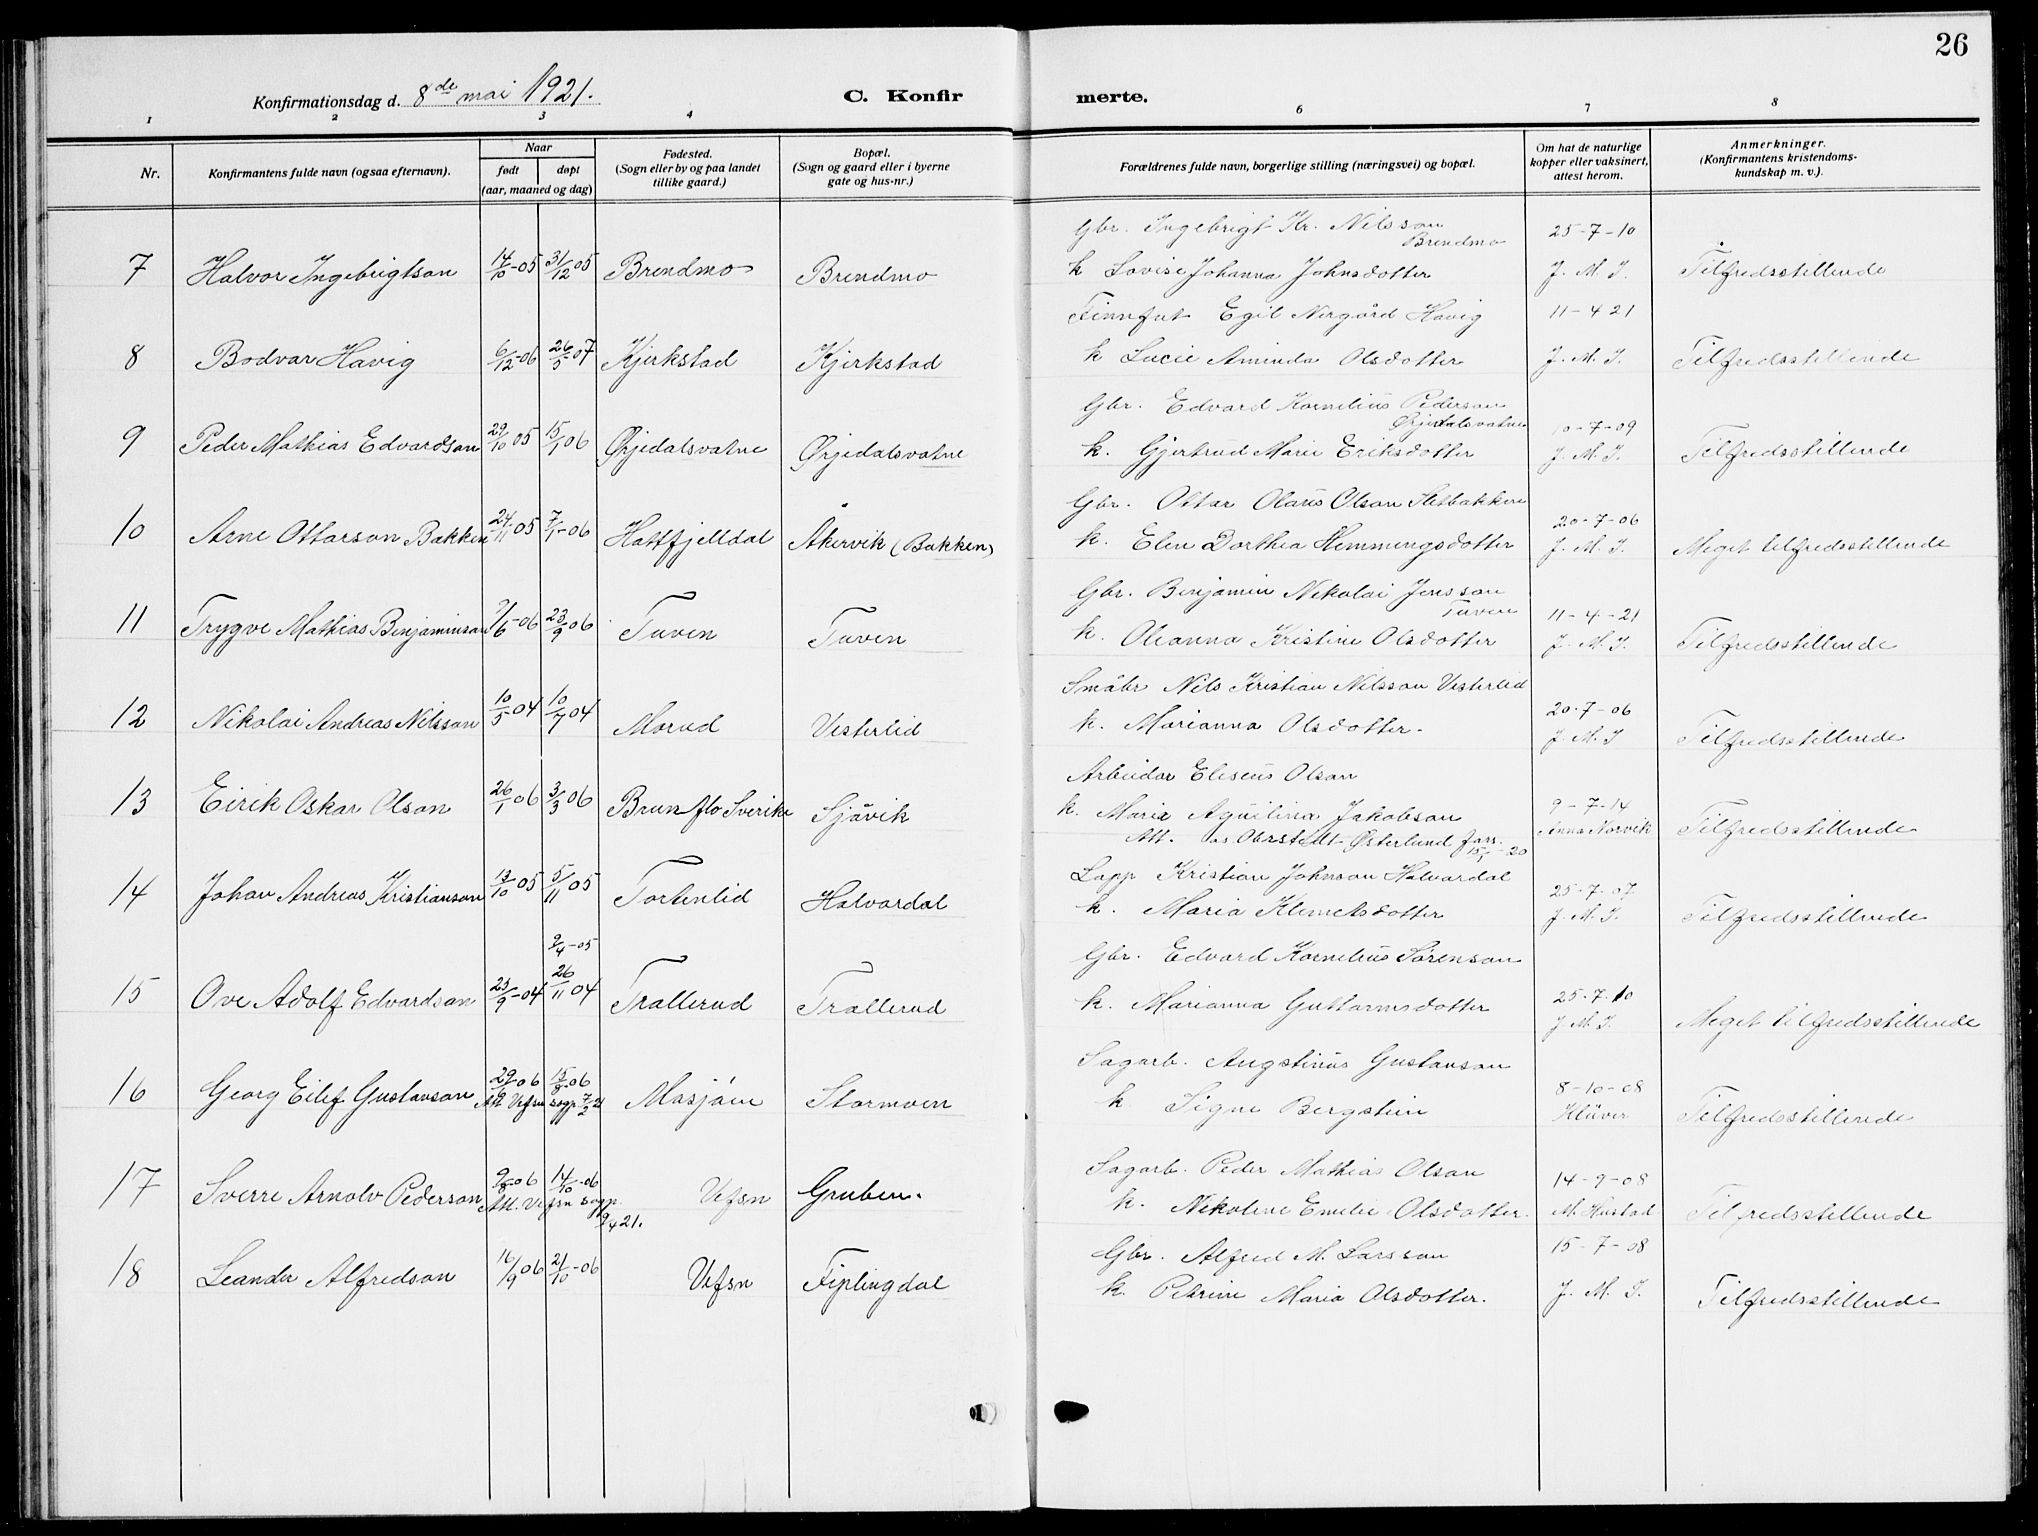 26
Konfirmationsdag d. 8de mai 1921.
C. Konfirmerte.
1 2 3 4 6 7 8
Nr.
Konfirmantens fulde navn (ogsaa efternavn).
Naar
født døpt
(aar, maaned og dag)
Fødested.
(Sogn eller by og paa landet
tillike gaard.)
Bopæl.
(Sogn og gaard eller i byerne
gate og hus-nr.)
Forældrenes fulde navn, borgerlige stilling (næringsvei) og bopæl.
Om hat de naturlige
kopper eller vaksinert,
attest herom.
Anmerkninger.
(Konfirmantens kristendoms-
kundskap m. v.).
Gbr. Ingebrigt Kr. Nilsson 25-7-10
Brendmo
7 Halvor Ingebrigtson 14/10-05 31/12 05 Brendmo Brendmo k Lovise Johanna Johnsdotter J. M. I. Tilfredsstillende
Finnfut Egil Nergård Havig 11-4 21
8 Bodvar Havig 6/12-06 26/5-07 Kjerkstad Kjerkstad k Lucie Aminda Olsdotter J. M. I. Tilfredsstillende
Gbr. Edvard Kornelius Pederson
Ørjedalsvatne 10-7-09
9 Peder Mathias Edvardson 29/10 05 15/1 06 Ørjedalsvatne Ørjedalsvatne k. Gjertrud Marie Eriksdotter J. M. I. Tilfredsstillende
Gbr. Ottar Olaus Olson Sletbakken
20-7-06
10 Arne Ottarson Bakken 24/11 05 7/1-06 Hattfjelldal Åkervik (Bakken) k. Elen Dorthea Hemmingsdotter J. M. I. Meget tilfredsstillende
Gbr. Benjamin Nikolai Jensson
Tuven 11-4-21
11 Trygve Mathias Benjaminson 7/6-06 23/9 06 Tuven Tuven k. Oleanna Kristine Olsdotter J. M. I. Tilfredsstillende
Småbr Nils Kristian Nilsson Vesterlid
20-7-06
12 Nikolai Andreas Nilsson 10/5 04 10/7 04 Morud Vesterlid k. Marianna Olsdotter. J. M. I Tilfredsstillende
Arbeidar Eliseus Olson
9-7-14
13 Eirik Oskar Olson 26/1 06 3/3 06 Brunflo Sverike Sjåvik k. Maria Aquilina Jakobson Anna Norvik Tilfredsstillende
Att.
Lapp Kristian Johnson Halvardal
25-7-07
14 Johan Andreas Kristianson 13/10 05 5/11 05 Tortenlid Halvardal k. Maria Klemetsdotter J. M. I. Tilfredsstillende
9/4-05
Gbr. Edvard Kornelius Sørenson
25-7-10
15 Ove Adolf Edvardson 23/9-04 26/11 04 Trallerud Trallerud k. Marianna Guttormsdotter J. M. I. Meget tilfredsstillende
Sagarb. Augstinus Gustavson
8-10-08
16 Georg Eilef Gustavson 15/8-06 Mosjøen Stormoen k Signe Bergstein Klüver Tilfredsstillende
Att Vefsn sogp 7/2 21
Sagarb. Peder Mathias Olson 14-9-08
17 Sverre Arnolv Pederson 9/8-06 14/10-06 Vefsn Gruben. k. Nikoline Emelie Olsdotter. M. Hustad Tilfredsstillende
Att. Vefsn sogp.
9/4 21.
Gbr. Alfred M. Larsson 15-7-08
18 Leander Alfredson 16/9 06 21/10-06 Vefsn Fiplingdal k. Petrine Maria Olsdotter. J. M. I. Tilfredsstillende